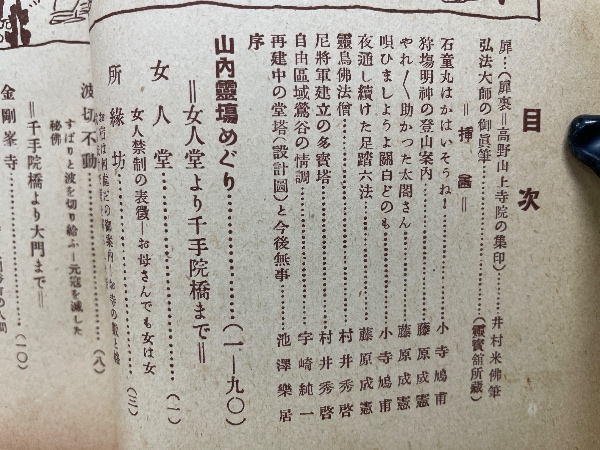 目次
扉…(扉裏＝高野山上寺院の集印)…井村米佛筆
弘法大師の御眞筆…………(靈寳舘所蔵)
＝挿畵＝
石童丸はかはいそうね！…………小寺鳩甫
狩塲明神の登山案内…………藤原成憲
やれ〳〵助かつた太閤さん…………藤原成憲
唄ひましようよ關白どのも…………小寺鳩甫
夜通し續けた足踏六法…………藤原成憲
靈鳥佛法僧…………村井秀啓
尼將軍建立の多寳塔…………村井秀啓
自由區域鶯谷の情調…………宇崎純一
再建中の堂塔(設計圖)と今後無事…………池澤樂居
序
山内靈塲めぐり…………(一—九〇)
＝女人堂より千手院橋まで＝
女人堂…………(一)
女人禁制の表徴—お母さんでも女は女
所縁坊…………(三)
波切不動…………(八)
すぱりと波を切り給ふ—元寇を滅した
秘佛
＝千手院橋より大門まで＝
金剛峯寺…………(一〇)